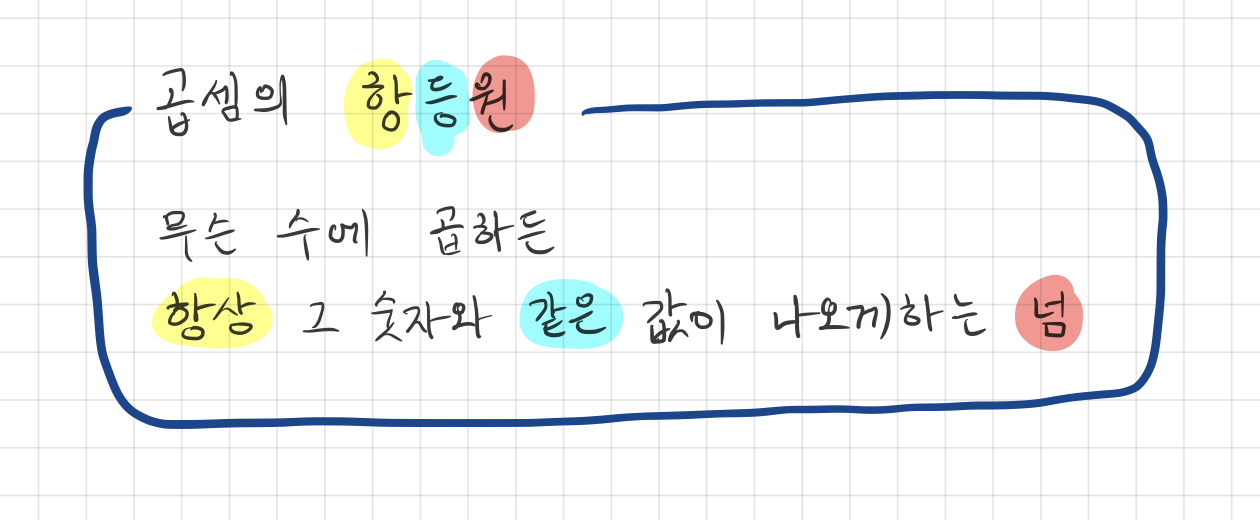 곱셈의 항등원
무슨 수에 곱하든
항상 그 숫자와 같은 값이 나오게하는 넘